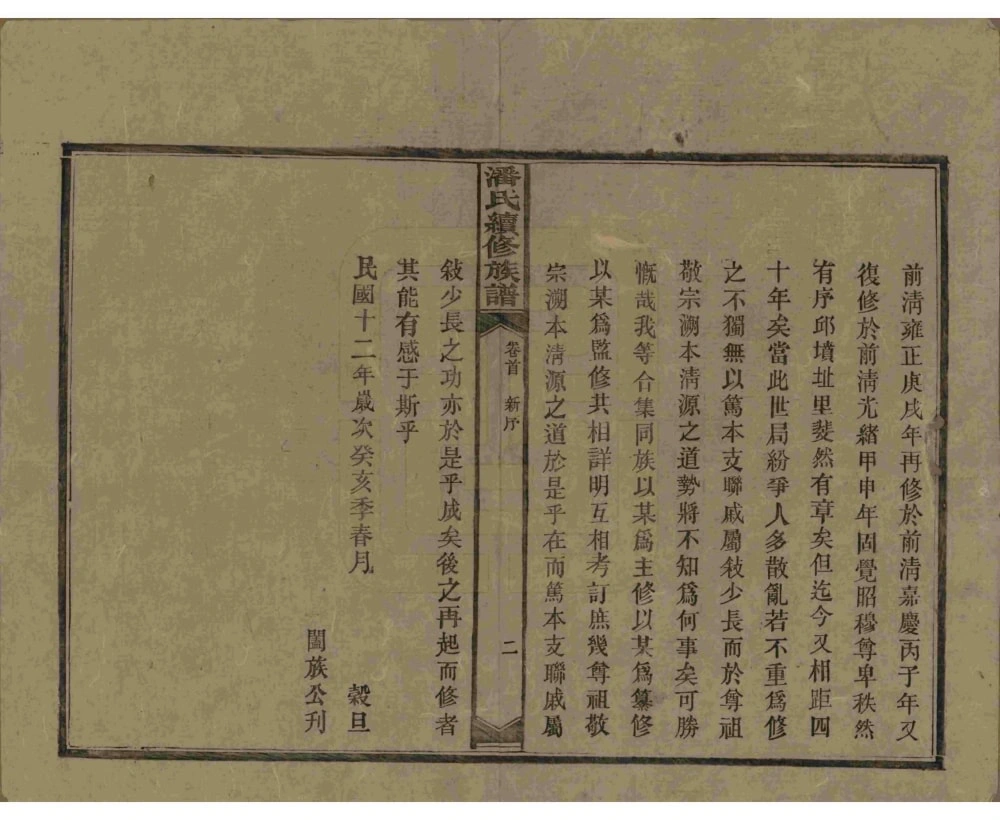 前淸雍正庚戌年再修於前淸嘉慶丙子年又
復修於前淸光緖甲申年固覺昭穆尊卑秩然
有序邱墳址里斐然有章矣但迄今又相距四
十年矣當此世局紛爭人多散亂若不重爲修
之不獨無以篤本支聯戚屬敍少長而於尊祖
敬宗溯本淸源之道勢將不知爲何事矣可勝
慨哉我等合集同族以某爲主修以某爲纂修
以某爲監修共相詳明互相考訂庶幾尊祖敬
宗溯本淸源之道於是乎在而篤本支聯戚屬
潘氏續修族譜
卷首 新序
二
敍少長之功亦於是乎成矣後之再起而修者
其能有感于斯乎
民國十二年歲次癸亥季春月 穀旦
闔族公刋